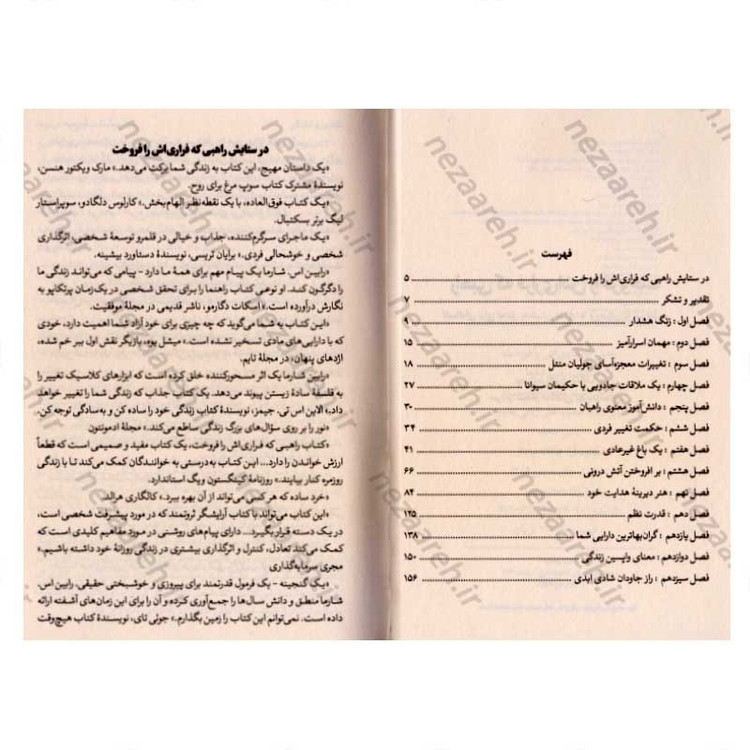 فهرست
در ستایش راهبی که فراری‌اش را فروخت ........ ۵
تقدیر و تشکر ........ ۷
فصل اول : زنگ هشدار ........ ۹
فصل دوم : مهمان اسرارآمیز ........ ۱۵
فصل سوم : تغییرات معجزه‌آسای جولیان منتل ........ ۱۸
فصل چهارم : یک ملاقات جادویی با حکیمان سیوانا ........ ۲۷
فصل پنجم : دانش‌آموز معنوی راهبان ........ ۳۰
فصل ششم : حکمت تغییر فردی ........ ۳۴
فصل هفتم : یک باغ غیرعادی ........ ۴۱
فصل هشتم : بر افروختن آتش درونی ........ ۶۶
فصل نهم : هنر دیرینهٔ هدایت خود ........ ۸۴
فصل دهم : قدرت نظم ........ ۱۲۵
فصل یازدهم : گران‌بهاترین دارایی شما ........ ۱۳۸
فصل دوازدهم : معنای واپسین زندگی ........ ۱۵۰
فصل سیزدهم : راز جاودان شادی ابدی ........ ۱۵۶
در ستایش راهبی که فراری‌اش را فروخت
«یک داستان مهیج، این کتاب به زندگی شما برکت می‌دهد.» مارک ویکتور هنسن،
نویسندهٔ مشترک کتاب سوپ مرغ برای روح.
«یک کتاب فوق‌العاده، با یک نقطه‌نظر الهام‌بخش.» کارلوس دلگادو، سوپراستار
لیگ برتر بسکتبال.
«یک ماجرای سرگرم‌کننده، جذاب و خیالی در قلمرو توسعهٔ شخصی، اثرگذاری
شخصی و خوشحالی فردی.» برایان تریسی، نویسندهٔ دستاورد بیشینه.
«رابین اس. شارما یک پیام مهم برای همهٔ ما دارد - پیامی که می‌تواند زندگی ما
را دگرگون کند. او نوعی کتاب راهنما را برای تحقق شخصی در یک‌زمان پرتکاپو به
نگارش درآورده است.» اسکات دگارمو، ناشر قدیمی در مجلهٔ موفقیت.
«این کتاب به شما می‌گوید که چه چیزی برای خود آزاد شما اهمیت دارد، خودی
که با دارایی‌های مادی تسخیر نشده است.» میشل یوه، بازیگر نقش اول ببر خم شده،
اژدهای پنهان، در مجلهٔ تایم.
«رابین شارما یک اثر مسحورکننده خلق کرده است که ابزارهای کلاسیک تغییر را
به فلسفهٔ سادهٔ زیستن پیوند می‌دهد. یک کتاب جذاب که زندگی شما را تغییر خواهد
داد.» الاین اس تی. جیمز، نویسندهٔ کتاب زندگی خود را ساده کن و به‌سادگی توجه کن.
«نور را بر روی سؤال‌های بزرگ زندگی ساطع می‌کند.» مجلهٔ ادمونتون
«کتاب راهبی که فراری‌اش را فروخت، یک کتاب مفید و صمیمی است که قطعاً
ارزش خواندن را دارد... این کتاب به‌درستی به خوانندگان کمک می‌کند تا با زندگی
روزمره کنار بیایند.» روزنامهٔ کینگستون ویگ استاندارد.
«خرد ساده که هر کسی می‌تواند از آن بهره ببرد.» کالگاری هرالد
«این کتاب می‌تواند با کتاب آرایشگر ثروتمند که در مورد پیشرفت شخصی است،
در یک دسته قرار بگیرد... دارای پیام‌های روشنی در مورد مفاهیم کلیدی است که
کمک می‌کند تعادل، کنترل و اثرگذاری بیشتری در زندگی روزانهٔ خود داشته باشیم.»
مجری سرمایه‌گذاری
«یک گنجینه - یک فرمول قدرتمند برای پیروزی و خوشبختی حقیقی. رابین اس.
شارما منطق و دانش سال‌ها را جمع‌آوری کرده و آن را برای این زمان‌های آشفته ارائه
داده است. نمی‌توانم این کتاب را زمین بگذارم.» جوئی تای، نویسندهٔ کتاب هیچ‌وقت
nezaareh.ir
nezaareh.ir
nezaareh.ir
nezaareh.ir
nezaareh.ir
nezaareh.ir